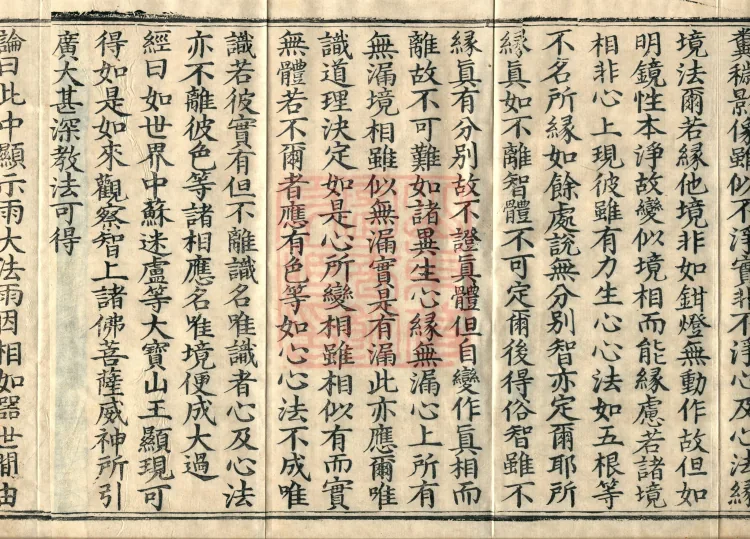 糞穢影像雖似不淨實非不淨心及心法緣
境法爾若緣他境非如鉗燈無動作故但如
明鏡性本淨故變似境相而能緣慮若諸境
相非心上現彼雖有力生心心法如五根等
不名所緣如餘處說無分別智亦定爾耶所
緣真如不離智體不可定爾後得俗智雖不
緣真有分別故不證真體但自變作真相而
離故不可難如諸異生心緣無漏心上所有
無漏境相雖似無漏實是有漏此亦應爾唯
識道理決定如是心所變相雖相似有而實
無體若不爾者應有色等如心心法不成唯
識若彼實有但不離識名唯識者心及心法
亦不離彼色等諸相應名唯境便成大過
經曰如世界中蘇迷盧等大寶山王顯現可
得如是如來觀察智上諸佛菩薩威神所引
廣大甚深教法可得
論曰此中顯示雨大法雨因相如器世間由